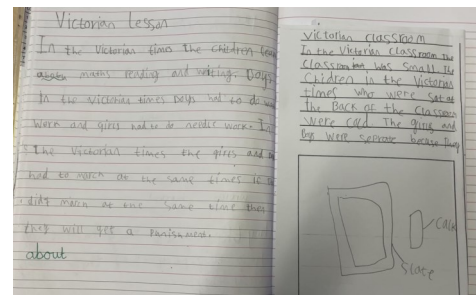 Victorian Lesson
In the Victorian times the children
maths reading and writing. Boys
In the Victorian times boys had to do
work and girls had to do needle work. In
the Victorian times the girls and
had to march at the same times if
didn't march at the same time then
they will get a Panishment.
about
Victorian classroom
In the Victorian classroom the
classroom was small. The
Children in the Victorian
times who were sat at
the Back of the classroom
were cold. The girls and
boys were seprate because they
Calk
Slate